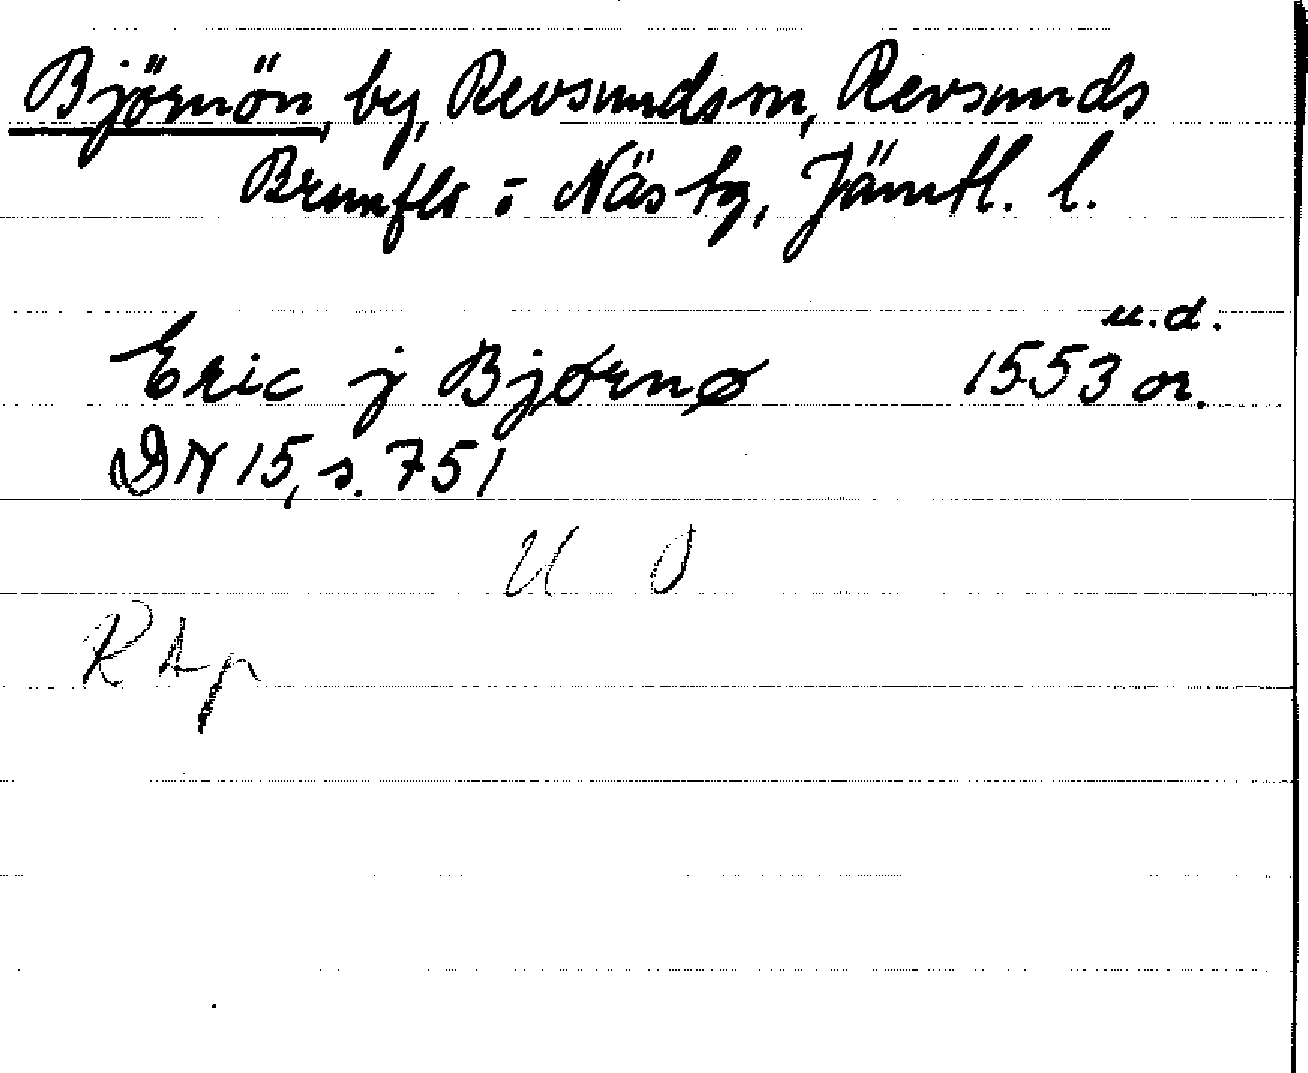 Björnön, by, Revsunds sn, Revsunds
Brunflo o Näs tg, Jämtl. l.
u.d.
Eric j Bjørnø 1553 or.
DN 15, s. 751